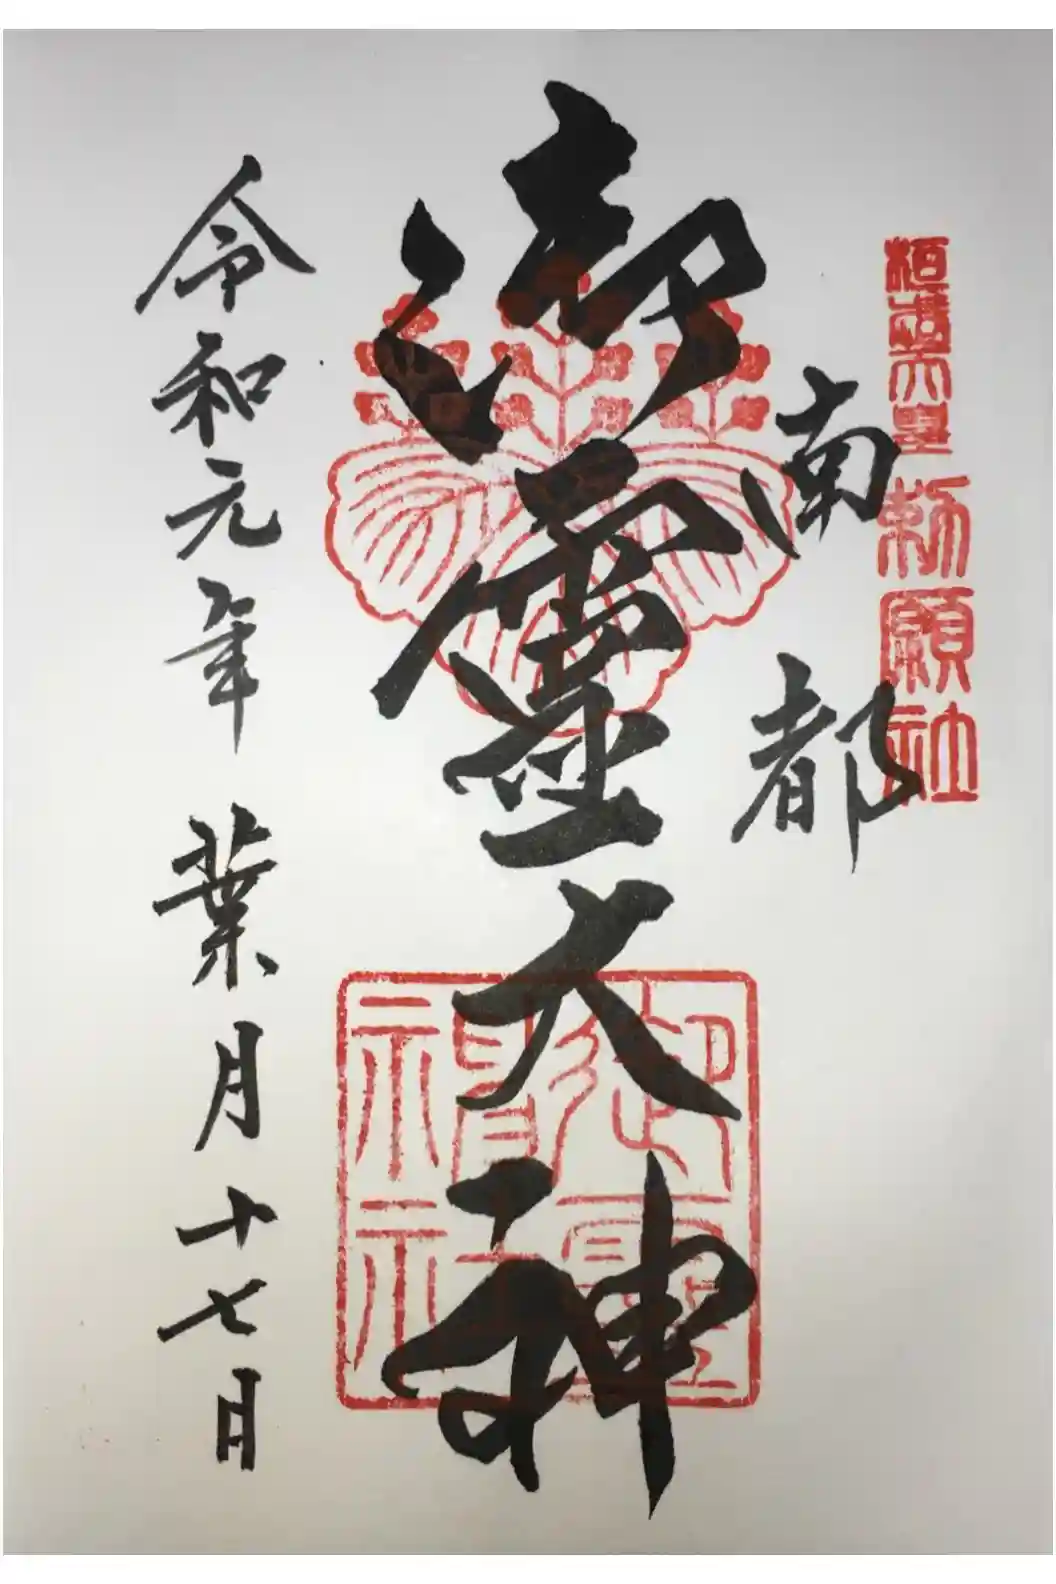 桓武天皇勅願社
南都
御靈大神
御靈神社
令和元年葉月十七日